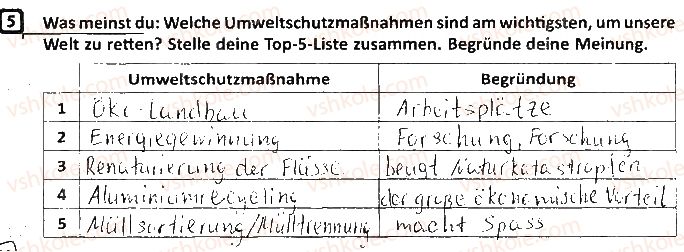 5 Was meinst du: Welche Umweltschutzmaßnahmen sind am wichtigsten, um unsere
Welt zu retten? Stelle deine Top-5-Liste zusammen. Begründe deine Meinung.
Umweltschutzmaßnahme Begründung
1 Öko-Landbau Arbeitsplätze
2 Energiegewinnung Forschung, Forschung
3 Renaturierung der Flüsse beugt Naturkatastrophen
4 Aluminiumrecycling der große ökonomische Vorteil
5 Müllsortierung/Mülltrennung macht Spass